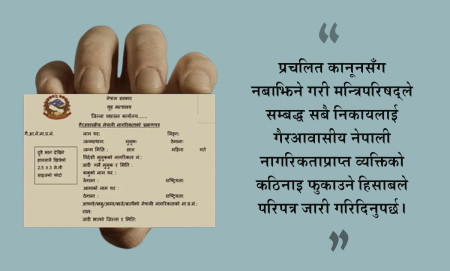 नेपाल सरकार
गृह मन्त्रालय
जिल्ला प्रशासन कार्यालय.....
गैरआवासीय नेपाली नागरिकताको प्रमाणपत्र
नाम थर: लिङ्ग:
जन्मस्थान: मुलुक: ठेगाना:
जन्म मिति: साल महिना गते
विदेशी मुलुकको नागरिकता नं:
जारी गर्ने मुलुक र मिति:
बाबुको नाम थर:
ठेगाना: राष्ट्रियता:
आमाको नाम थर:
ठेगाना: राष्ट्रियता:
नाम:
जारी भएको जिल्ला र मिति:
दुवै कान देखिने
फोटो
“
प्रचलित कानूनसँग
नबाझिने गरी मन्त्रिपरिषद्ले
सम्बद्ध सबै निकायलाई
गैरआवासीय नेपाली
नागरिकताप्राप्त व्यक्तिको
कठिनाइ फुकाउने हिसाबले
परिपत्र जारी गरिदिनुपर्छ।
”